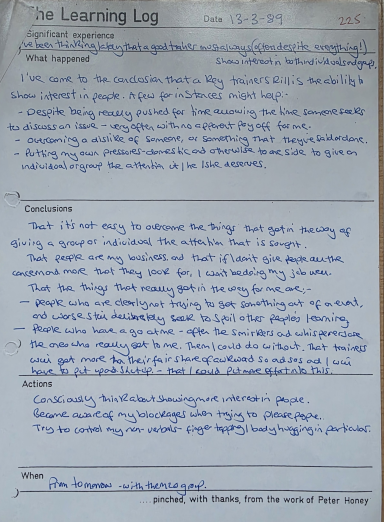 The Learning Log Date 13-3-89 225
Significant experience
I've been thinking today that a good trainer must always (often despite everything!)
show interest to individuals and group.
What happened
I've come to the conclusion that a key trainers skill is the ability to
show interest in people. A few for instances might help:-
- Despite being really pushed for time allowing the time someone seeks
to discuss an issue - very often with no apparent pay off for me.
- Overcoming a dislike of someone, or something that they've said or done.
- Putting my own pressures - domestic and otherwise to one side to give an
individual or group the attention it/he/she deserves.
Conclusions
That it's not easy to overcome the things that get in the way of
giving a group or individual the attention that is sought.
That people are my business, and that if I don't give people all the
concern and more that they look for, I won't be doing my job well.
That the things that really get in the way for me are:-
- People who are clearly not trying to get something out of an event,
and worse still deliberately seek to spoil other people's learning
- People who have a go at me - after the smirkers and whisperers are
the ones who really get to me. Them I could do without. That trainers
will get more than their fair share of awkward so and sos and I will
have to put up and shut up - that I could put more effort into this.
Actions
Consciously think about showing more interest in people.
Become aware of my blockages when trying to please people.
Try to control my non-verbals - finger tapping / body hugging in particular.
When
From tomorrow - with the group.
.... pinched, with thanks, from the work of Peter Honey